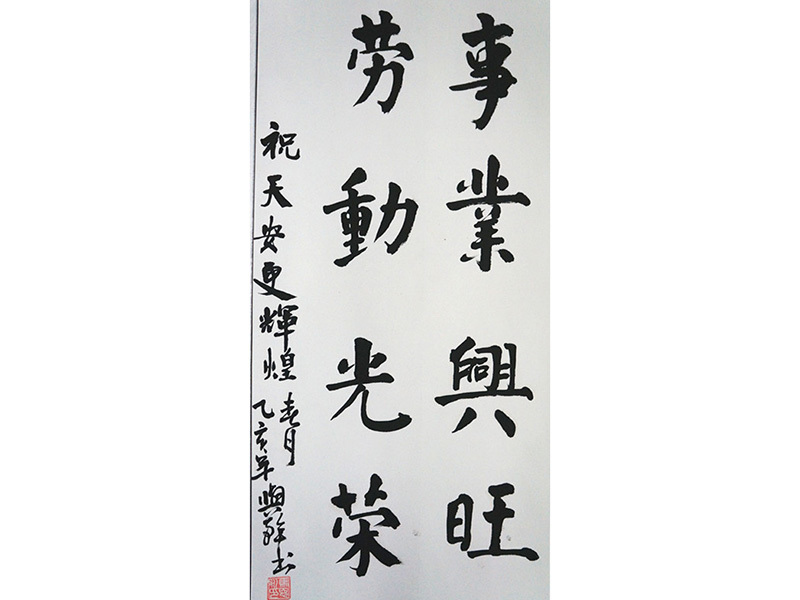 事業興旺
劳動光荣
祝天安更輝煌
春月
乙亥年興辭书